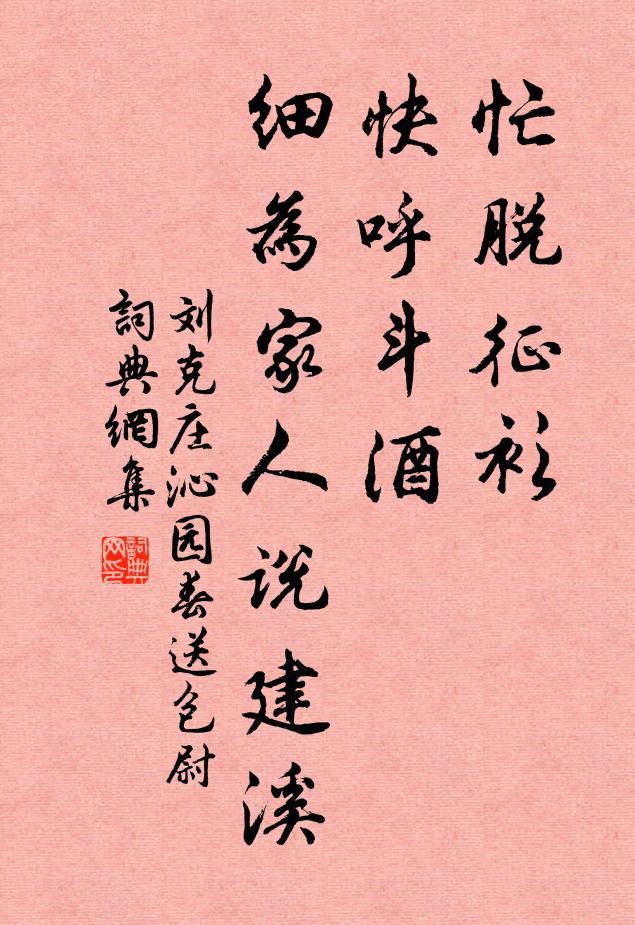 忙脱征衫
快呼斗酒
细為家人说建溪
刘克庄沁园春送包尉
詞典網集
詞典网印